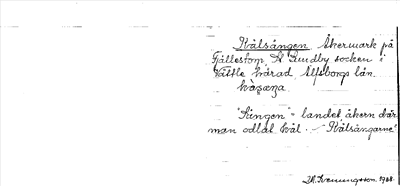 Kålsängen Åkermark på
Fjällestorp, St. Lundby socken i
Vättle härad Älfsborgs län.
"Sängen" = landet, åkern där
man odlat kål. - "Kålsängarne"
1928.